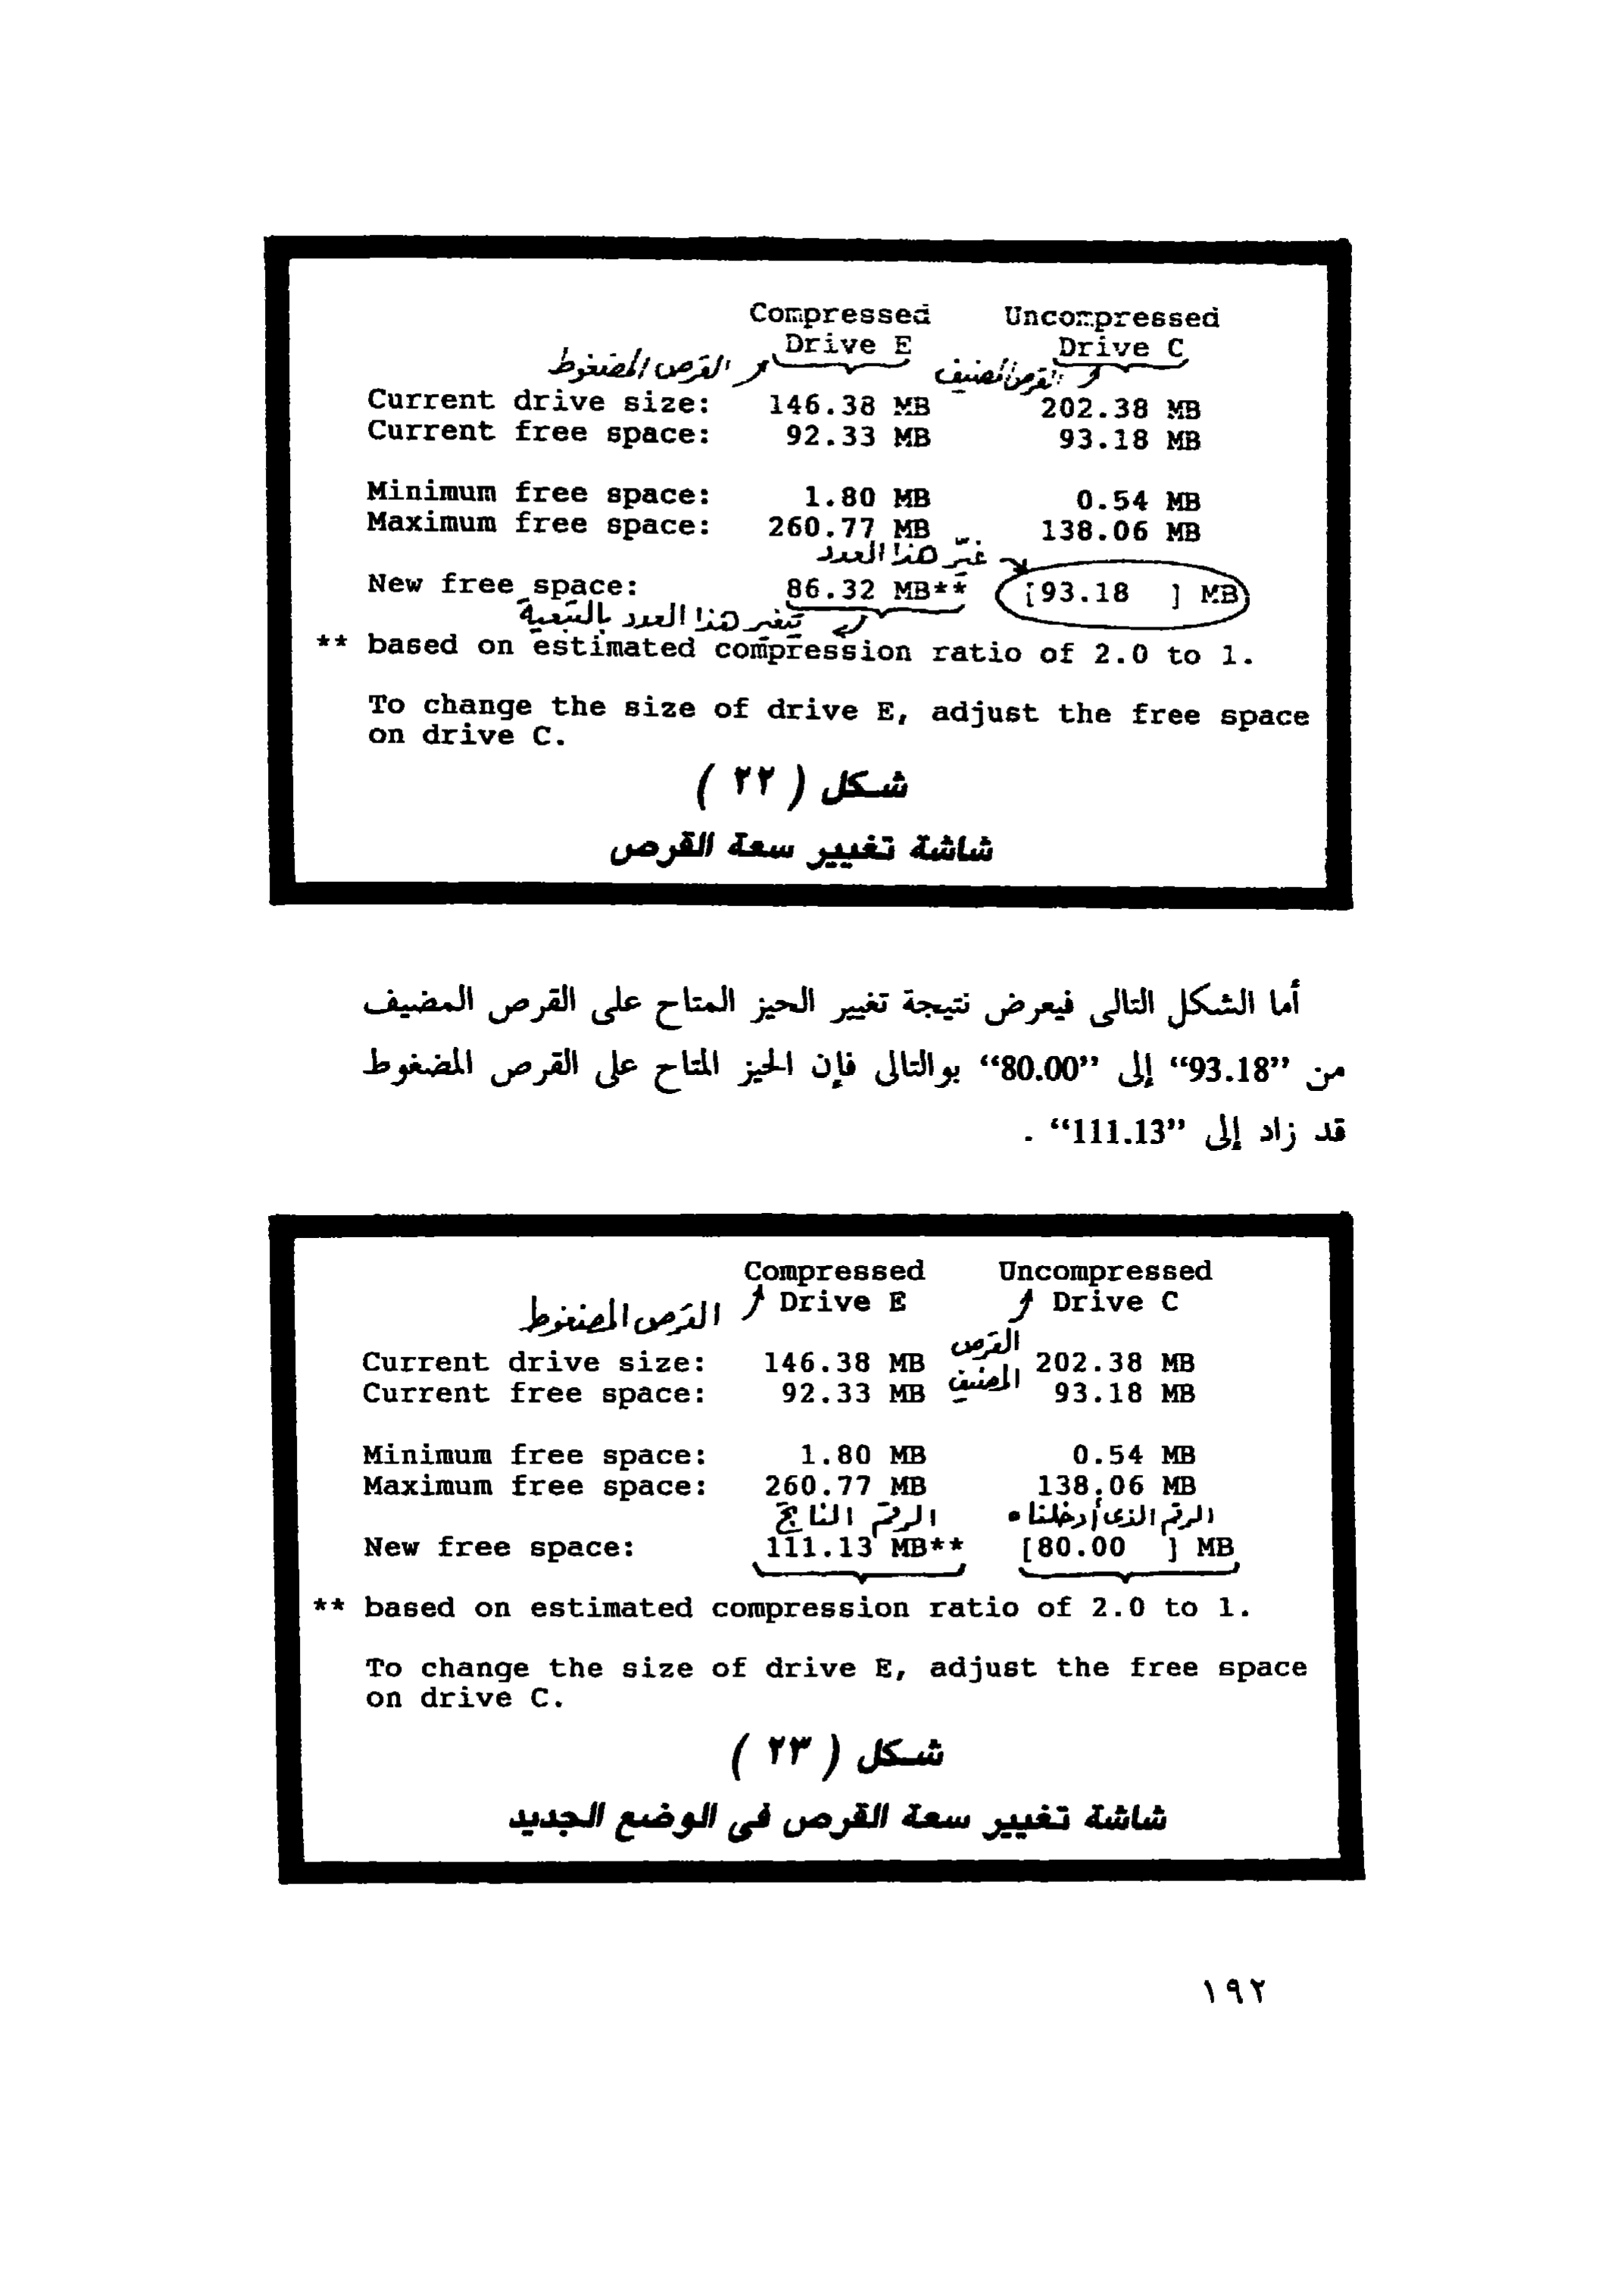 Compressed Uncompressed
Drive E Drive C
القرص المضغوط القرص المضيف
Current drive size: 146.38 MB 202.38 MB
Current free space: 92.33 MB 93.18 MB
Minimum free space: 1.80 MB 0.54 MB
Maximum free space: 260.77 MB 138.06 MB
غيّر هذا العدد
New free space: 86.32 MB** [93.18 ] MB
يتغير هذا العدد بالتبعية
** based on estimated compression ratio of 2.0 to 1.
To change the size of drive E, adjust the free space
on drive C.
شكل ( ٢٢ )
شاشة تغيير سعة القرص
أما الشكل التالى فيعرض نتيجة تغيير الحيز المتاح على القرص المضيف
من “93.18” إلى “80.00” بوالتالى فإن الحيز المتاح على القرص المضغوط
قد زاد إلى “111.13” .
Compressed Uncompressed
Drive E Drive C
القرص المضغوط
القرص
Current drive size: 146.38 MB 202.38 MB
المضيف
Current free space: 92.33 MB 93.18 MB
Minimum free space: 1.80 MB 0.54 MB
Maximum free space: 260.77 MB 138.06 MB
الرقم الناتج الرقم الذى أدخلناه
New free space: 111.13 MB** [80.00 ] MB
** based on estimated compression ratio of 2.0 to 1.
To change the size of drive E, adjust the free space
on drive C.
شكل ( ٢٣ )
شاشة تغيير سعة القرص فى الوضع الجديد
١٩٢